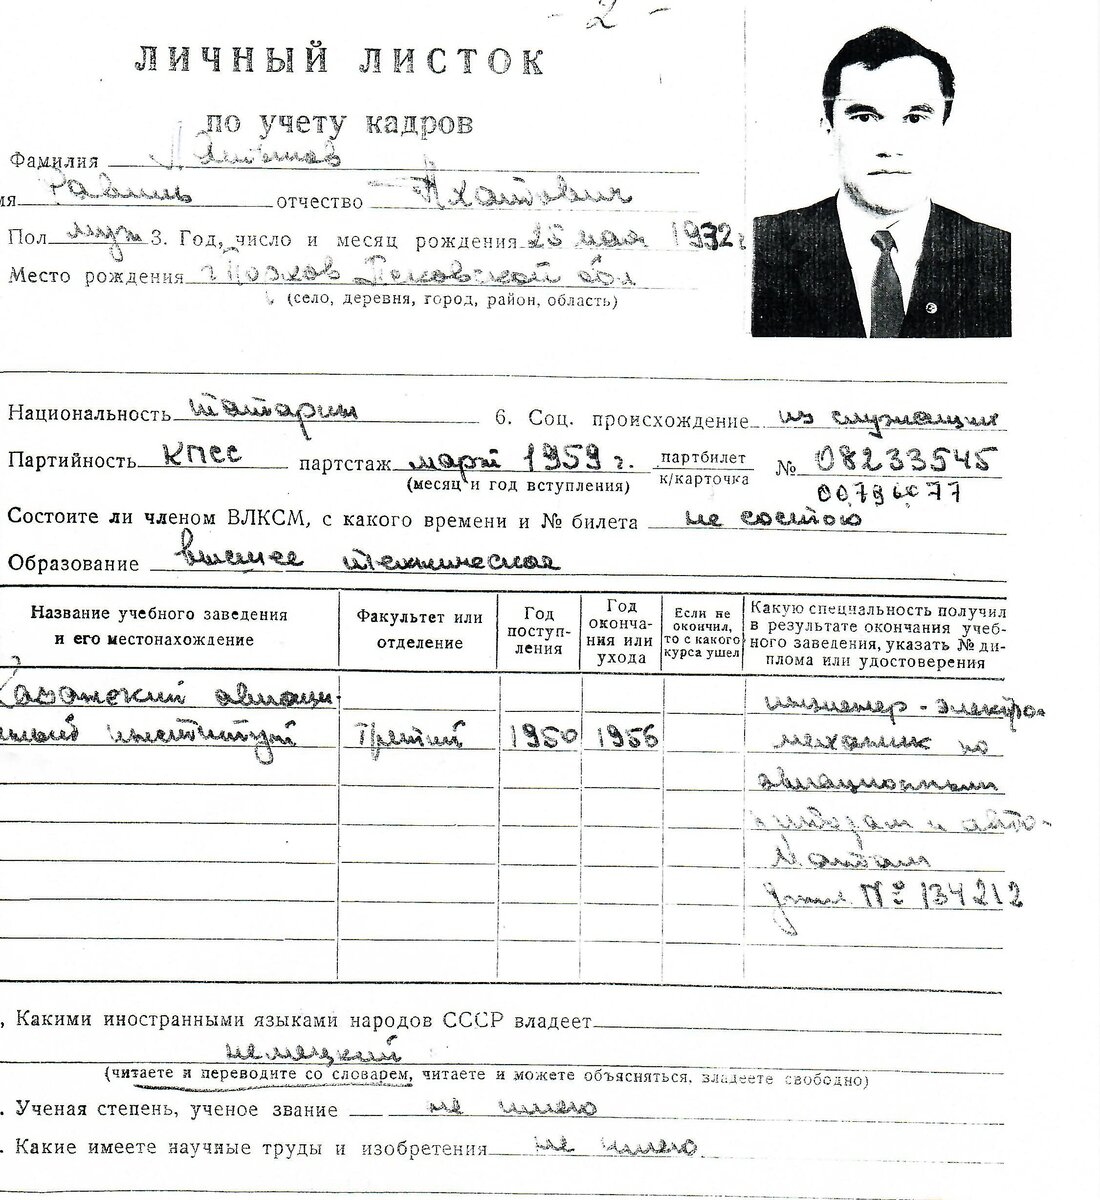 - 2 -
ЛИЧНЫЙ ЛИСТОК
по учету кадров
Фамилия
мя Равиль отчество Ахатович
Пол муж 3. Год, число и месяц рождения 25 мая 1932 г
Место рождения г. Псковской обл
(село, деревня, город, район, область)
Национальность татарин 6. Соц. происхождение из служащих
Партийность КПСС партстаж март 1959 г. партбилет к/карточка № 08233545
(месяц и год вступления)
Состоите ли членом ВЛКСМ, с какого времени и № билета не состою
Образование высшее техническое
Название учебного заведения и его местонахождение
Факультет или отделение
Год поступления
Год окончания или ухода
Если не окончил, то с какого курса ушел
Какую специальность получил в результате окончания учебного заведения, указать № диплома или удостоверения
Казанский авиаци-
онный институт Третий 1950 1956
инженер-электро-
механик по
авиационным
приборам и авто-
матам
дипл. № 134212
, Какими иностранными языками народов СССР владеет
немецкий
(читаете и переводите со словарем, читаете и можете объясняться, владеете свободно)
. Ученая степень, ученое звание не имею
. Какие имеете научные труды и изобретения не имею